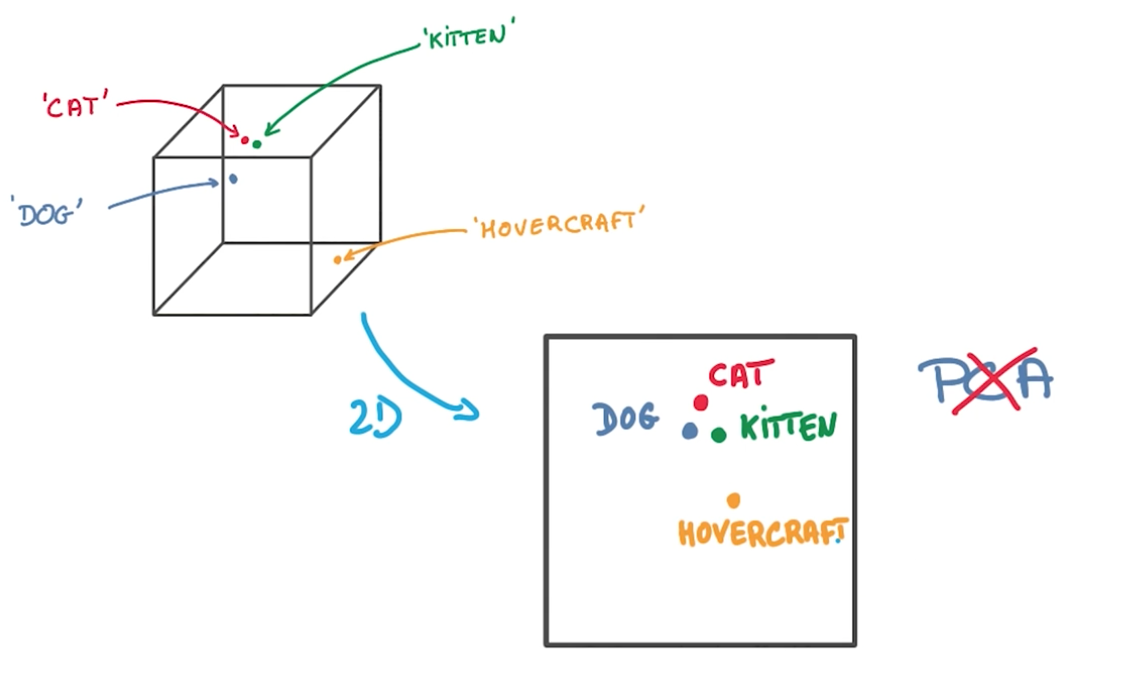 'KITTEN'
'CAT'
'DOG'
'HOVERCRAFT'
2D
CAT
DOG
KITTEN
HOVERCRAFT
PCA